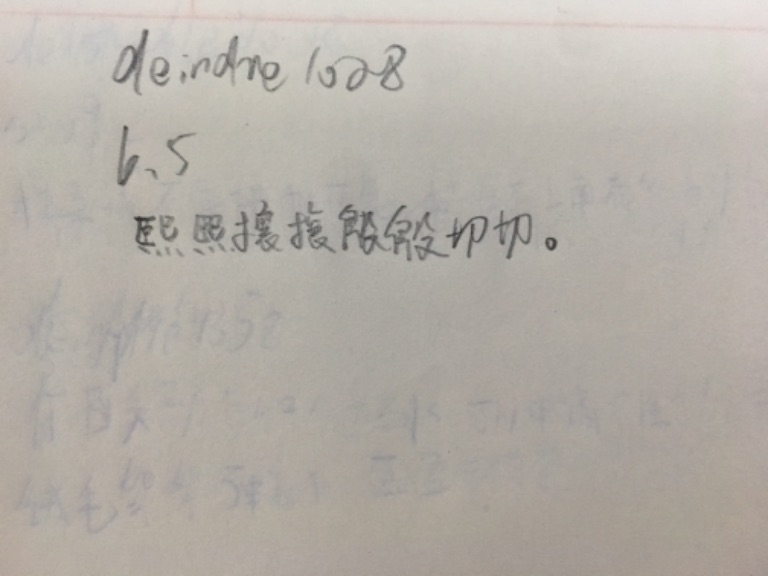 deirdre 1028
6.5
熙熙攘攘殷殷切切。